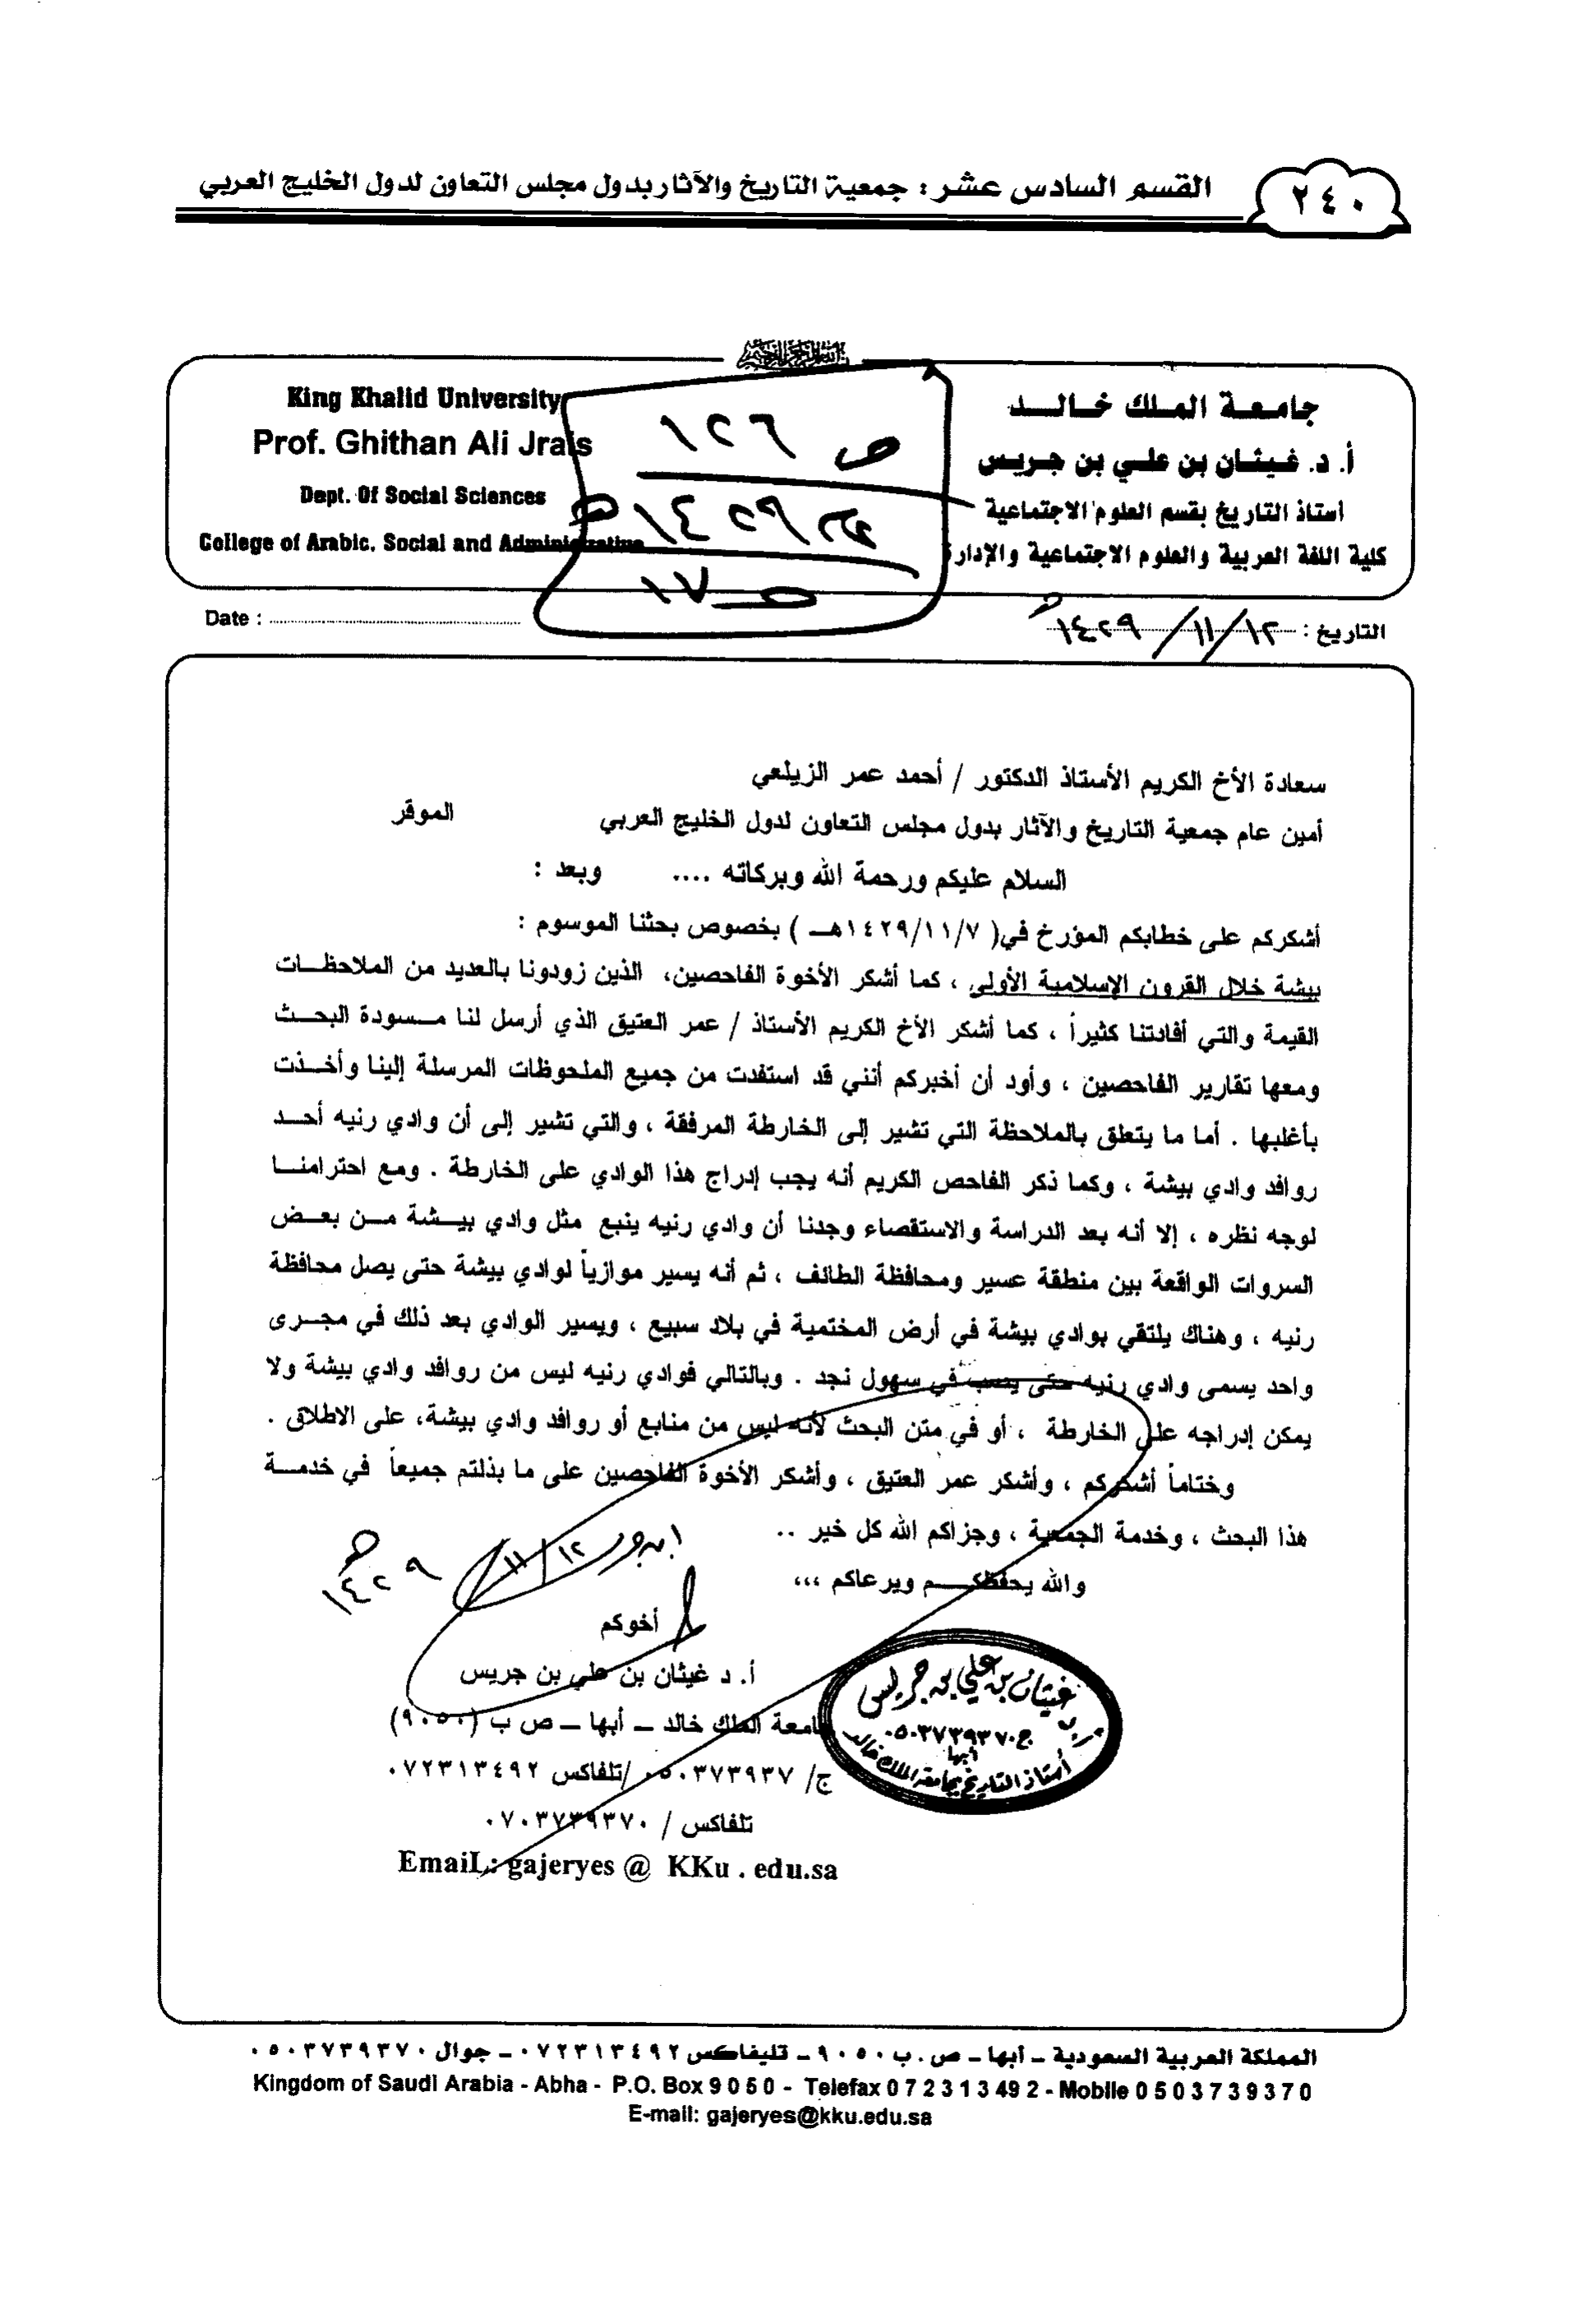 ٢٤٠
القسم السادس عشر : جمعية التاريخ والآثار بدول مجلس التعاون لدول الخليج العربي
جامعة الملك خالد
أ. د. غيثان بن علي بن جريس
أستاذ التاريخ بقسم العلوم الاجتماعية
كلية اللغة العربية والعلوم الاجتماعية والإدارة
King Khalid University
Prof. Ghithan Ali Jrais
Dept. Of Social Sciences
College of Arabic. Social and Administrative
ص ١٢٦
عام ١٤٢٩هـ
١٧
التاريخ : ١٤٢٩/١١/١٢هـ
Date :
سعادة الأخ الكريم الأستاذ الدكتور / أحمد عمر الزيلعي
أمين عام جمعية التاريخ والآثار بدول مجلس التعاون لدول الخليج العربي الموقر
السلام عليكم ورحمة الله وبركاته .... وبعد :
أشكركم على خطابكم المؤرخ في( ١٤٢٩/١١/٧هـ ) بخصوص بحثنا الموسوم :
بيشة خلال القرون الإسلامية الأولى ، كما أشكر الأخوة الفاحصين، الذين زودونا بالعديد من الملاحظات
القيمة والتي أفادتنا كثيراً ، كما أشكر الأخ الكريم الأستاذ / عمر العتيق الذي أرسل لنا مسودة البحث
ومعها تقارير الفاحصين ، وأود أن أخبركم أنني قد استفدت من جميع الملحوظات المرسلة إلينا وأخذت
بأغلبها . أما ما يتعلق بالملاحظة التي تشير إلى الخارطة المرفقة ، والتي تشير إلى أن وادي رنيه أحد
روافد وادي بيشة ، وكما ذكر الفاحص الكريم أنه يجب إدراج هذا الوادي على الخارطة . ومع احترامنا
لوجه نظره ، إلا أنه بعد الدراسة والاستقصاء وجدنا أن وادي رنيه ينبع مثل وادي بيشة من بعض
السروات الواقعة بين منطقة عسير ومحافظة الطائف ، ثم أنه يسير موازياً لوادي بيشة حتى يصل محافظة
رنيه ، وهناك يلتقي بوادي بيشة في أرض المختمية في بلاد سبيع ، ويسير الوادي بعد ذلك في مجرى
واحد يسمى وادي رنيه حتى يصب في سهول نجد . وبالتالي فوادي رنيه ليس من روافد وادي بيشة ولا
يمكن إدراجه على الخارطة ، أو في متن البحث لأنه ليس من منابع أو روافد وادي بيشة، على الاطلاق .
وختاماً أشكركم ، وأشكر عمر العتيق ، وأشكر الأخوة الفاحصين على ما بذلتم جميعاً في خدمة
هذا البحث ، وخدمة الجمعية ، وجزاكم الله كل خير ..
والله يحفظكم ويرعاكم ،،،
١٤٢٩/١١/١٢هـ
أخوكم
أ. د غيثان بن علي بن جريس
جامعة الملك خالد – أبها – ص ب (٩٠٥٠)
ج/ ٠٥٠٣٧٣٩٣٧ /تلفاكس ٠٧٢٣١٣٤٩٢
تلفاكس / ٠٧٠٣٧٣٩٣٧٠
EmaiL: gajeryes @ KKu . edu.sa
غيثان بن علي بن جريس
ج٠٥٠٣٧٣٩٣٧٠
أبها
أستاذ التاريخ بجامعة الملك خالد
المملكة العربية السعودية – أبها – ص . ب ٩٠٥٠ – تليفاكس ٠٧٢٣١٣٤٩٢ – جوال ٠٥٠٣٧٣٩٣٧٠
Kingdom of Saudi Arabia - Abha - P.O. Box 9 0 5 0 - Telefax 0 7 2 3 1 3 4 9 2 - Mobile 0 5 0 3 7 3 9 3 7 0
E-mail: gajeryes@kku.edu.sa